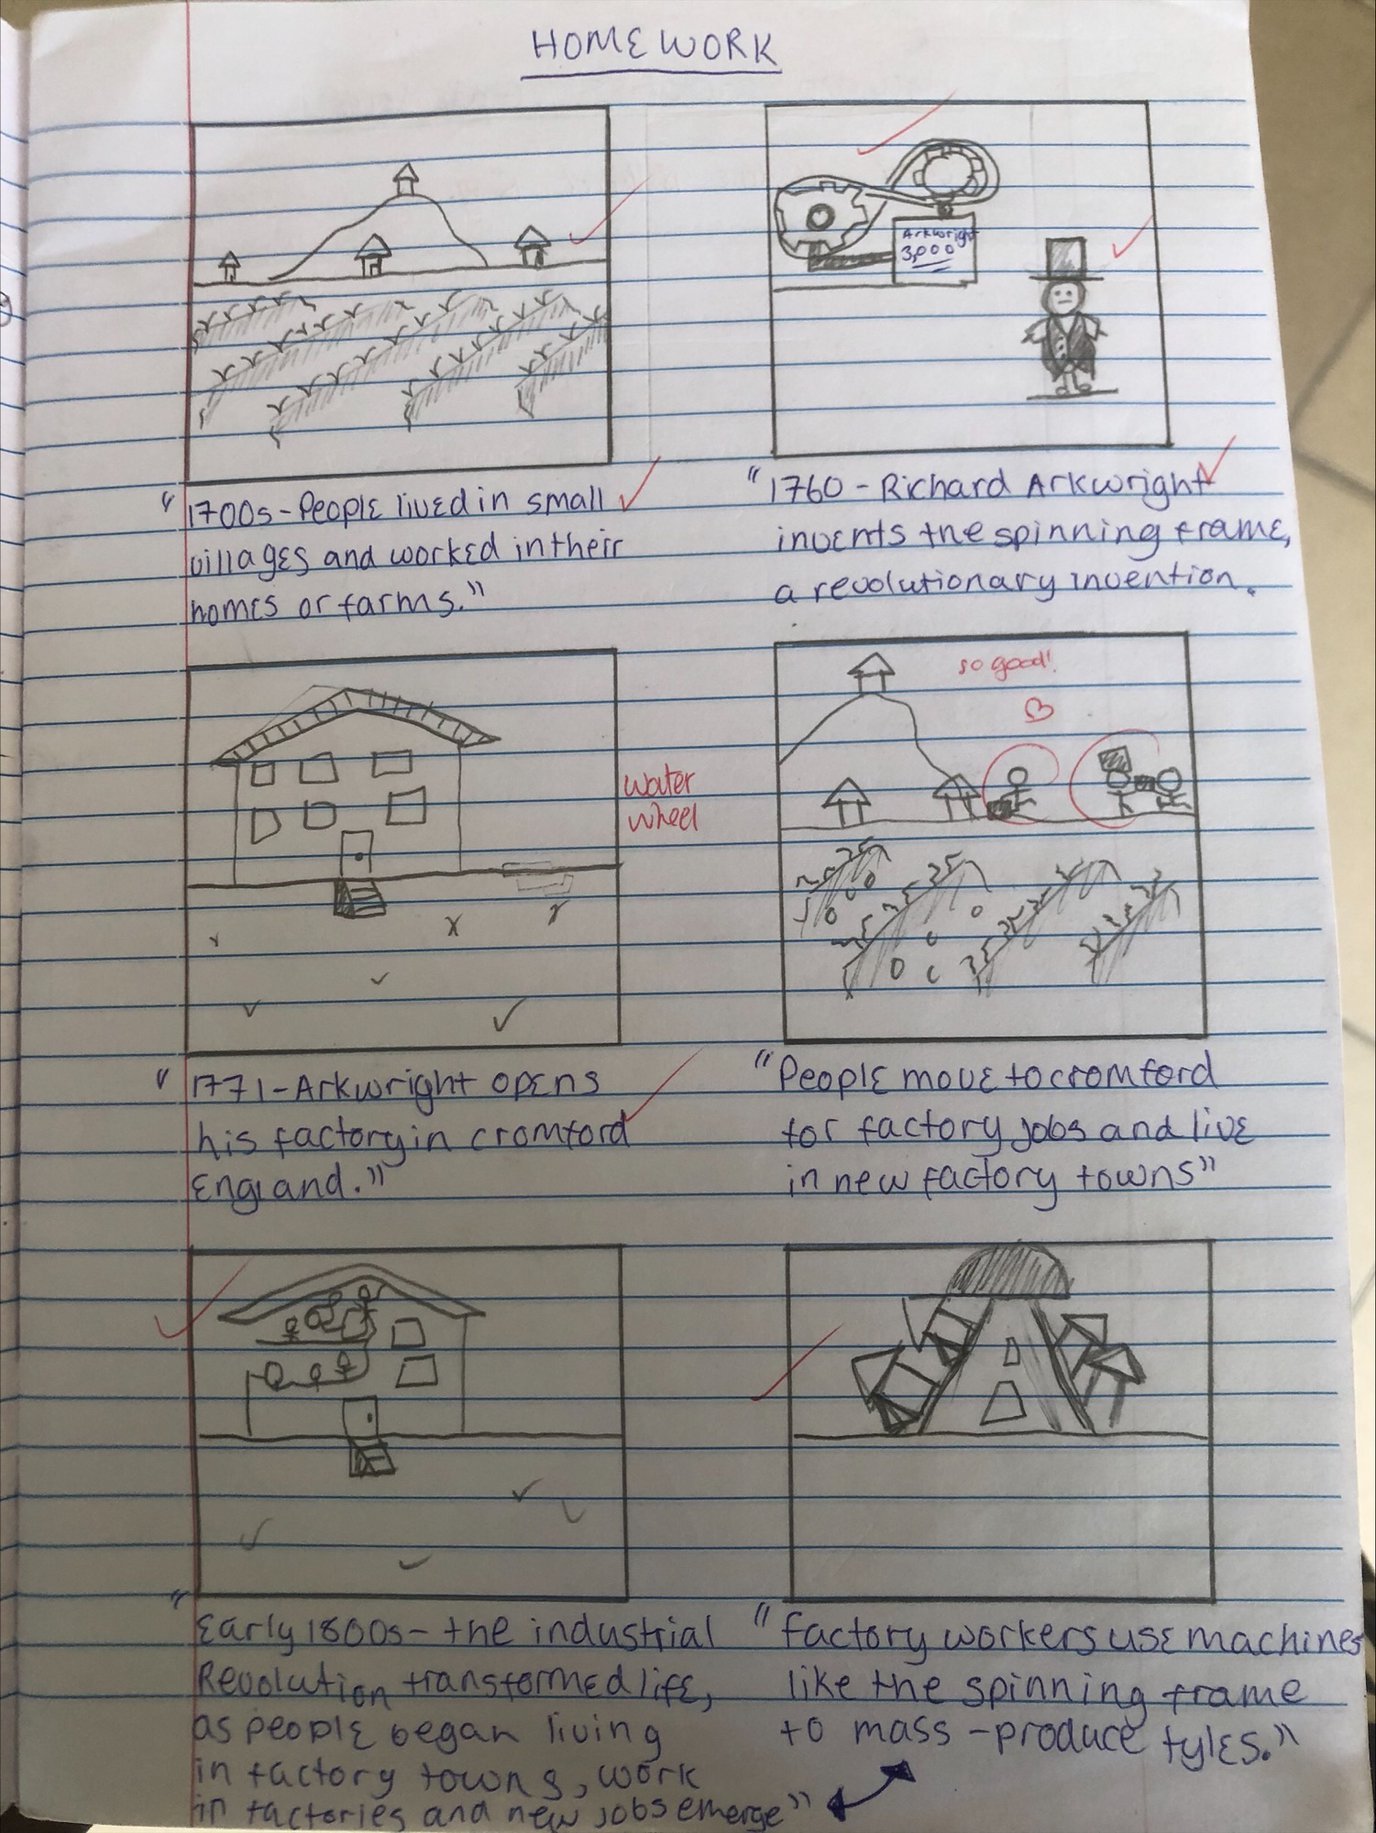 HOMEWORK
Arkwright
3,000
"1700s - People lived in small
villages and worked in their
homes or farms."
"1760 - Richard Arkwright
invents the spinning frame,
a revolutionary invention.
water
wheel
so good!
"1771 - Arkwright opens
his factory in cromford
England."
"People move to cromford
for factory jobs and live
in new factory towns"
"Early 1800s - the industrial
Revolution transformed life,
as people began living
in factory towns, work
in factories and new jobs emerge"
"factory workers use machines
like the spinning frame
to mass-produce tyles."